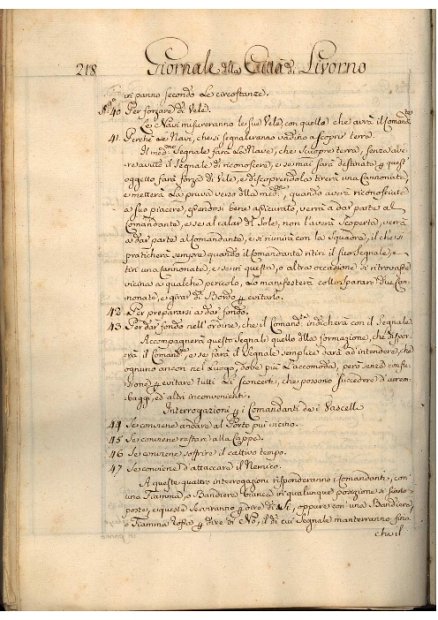 218 Giornale della Città di Livorno
in panno secondo le circostanze.
N.º 40 Per forzare di Vela.
Le Navi misureranno le sue Vele, con quello che avrà il Comand.te
41. Perché le Navi, che si segnaleranno vadino a scoprir terra.
Il med.mo Segnale farà la Nave, che scuopre terra, senza aver
avuto il Segnale di riconoscere, e se mai sarà destinata p questo
oggetto farà forza di Vele, e discoprendola tirerà una Cannonata,
e metterà la prua verso della med.ma, quando avrà riconosciuto
a suo piacere, essendosi bene assicurato, verrà a dar parte al
Comandante, e se al calar del Sole, non l'averà scoperta, verrà
a dar parte al Comandante, e si riunirà con la Squadra, il che si
praticherà sempre quando il Comandante ritiri il suo segnale, e
tiri una cannonata, e se in questa, o altra occasione di ritrovasse
vicina a qualche pericolo, lo manifesterà collo sparar due Can-
nonate, e girar di Bordo p evitarlo.
42 Per prepararsi a dar fondo.
43 Per dar fondo nell'ordine, che il Comand.te indicherà con il Segnale
Accompagnerà questo Segnale quello della formazione, che disporrà
il Comand.te e se farà il Segnale semplice darà ad intendere, che
ognuno ancori nel luogo, dove più l'accomoda, però senza confu-
sione p evitare tutti li sconcerti, che possono succedere d'arrem-
baggi, ed altri inconvenienti.
Interrogazioni p i Comandanti dei Vascelli
44 Se conviene andare al Porto più vicino.
45 Se conviene restare alla Cappa.
46 Se conviene soffrire il cattivo tempo.
47 Se conviene d'attaccare il Nemico.
A queste quattro interrogazioni risponderanno i Comandanti, con
una Fiamma, o Bandiera bianca in qualunque posizione si siano
poste, e questa servirà p dire di Sì, oppure con una Bandiera,
o Fiamma rossa p dire di No, il di cui Segnale manterranno fino
che il